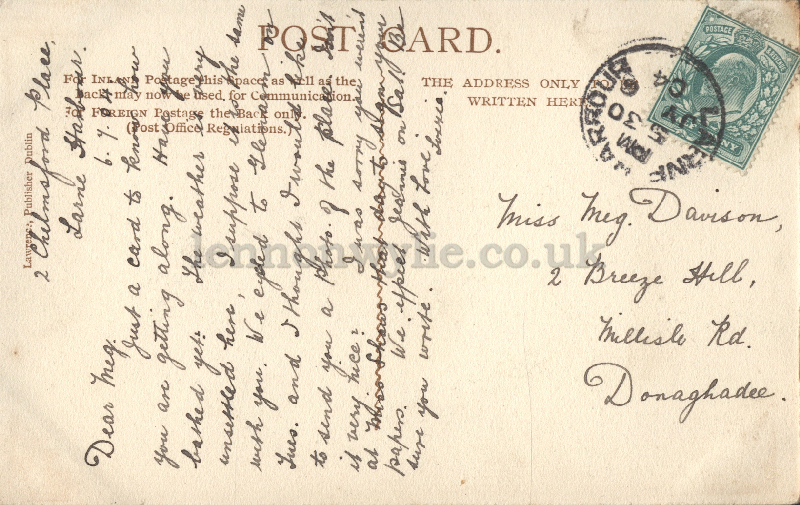 POST CARD.
For INLAND Postage this Space, as well as the
back, may now be used, for Communication.
For FOREIGN Postage the Back only.
(Post Office Regulations.)
THE ADDRESS ONLY
WRITTEN HERE
Lawrence, Publisher Dublin
LARNE HARBOUR
5.30 PM
6 JY
04
POSTAGE
2 Chelmsford Place,
Larne Harbour.
6.7.04.
Dear Meg.
Just a card to know how
you are getting along. Have you
bathed yet. The weather is very
unsettled here, I suppose it is the same
with you. We cycled to Glenarm on
Tues. and I thought I would like
to send you a Pho. of the place. Isn't
it very nice? I was sorry you weren't
at Miss Shaws that day to sign your
papers. We expect on Sat. Be
sure you write. With Love
Miss Meg. Davison,
2 Breeze Hill,
Millisle Rd.
Donaghadee.
lennonwylie.co.uk